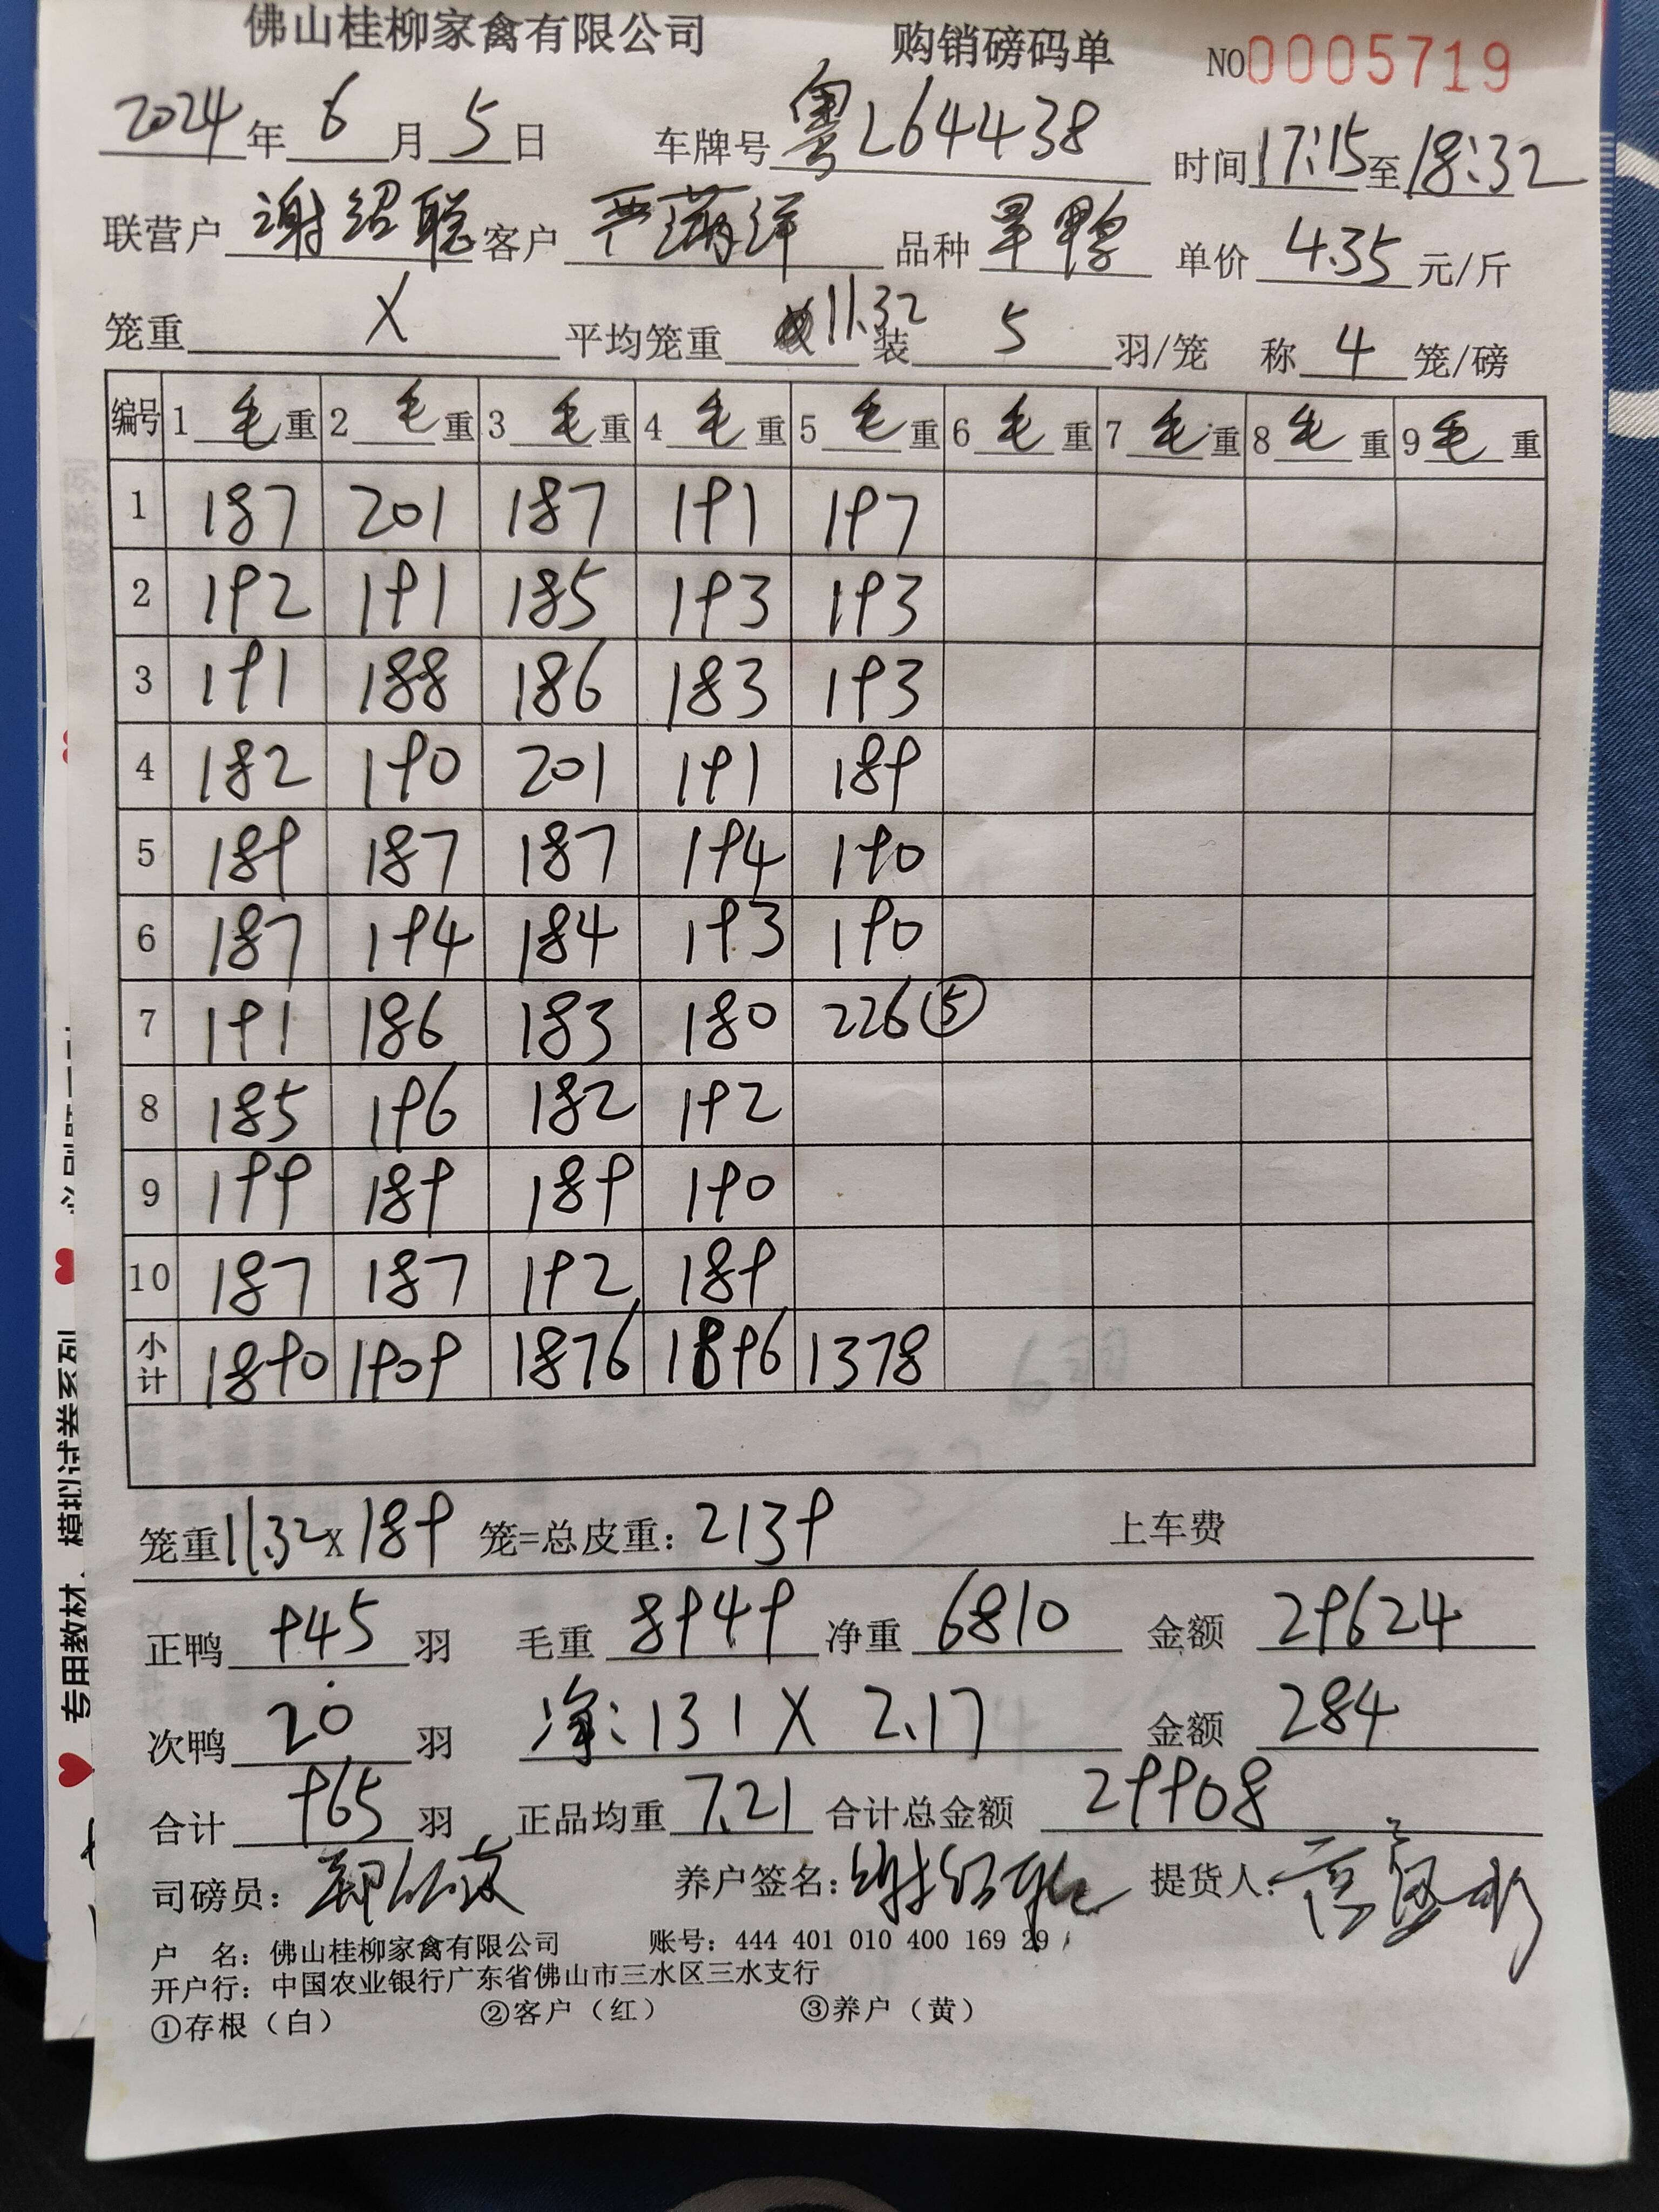 佛山桂柳家禽有限公司 购销磅码单 NO0005719
2024年6月5日 车牌号粤L64438 时间17:15至18:32
联营户谢绍聪客户严满洋 品种旱鸭 单价4.35元/斤
笼重X平均笼重11.32装5羽/笼 称4笼/磅
编号 1毛重 2毛重 3毛重 4毛重 5毛重 6毛重 7毛重 8毛重 9毛重
1 187 201 187 191 197
2 192 191 185 193 193
3 191 188 186 183 193
4 182 190 201 191 189
5 189 187 187 194 190
6 187 194 184 193 190
7 191 186 183 180 226⑤
8 185 196 182 192
9 199 189 189 190
10 187 187 192 189
小计 1890 1909 1876 1896 1378
笼重11.32X189笼=总皮重：2139 上车费
正鸭945羽 毛重8949净重6810 金额29624
次鸭20羽 净：131X2.17 金额284
合计965羽 正品均重7.21合计总金额29908
司磅员： 养户签名：谢绍聪 提货人：
户 名：佛山桂柳家禽有限公司 账号：444 401 010 400 169 29
开户行：中国农业银行广东省佛山市三水区三水支行
①存根（白） ②客户（红） ③养户（黄）
专用教材、模拟试卷系列